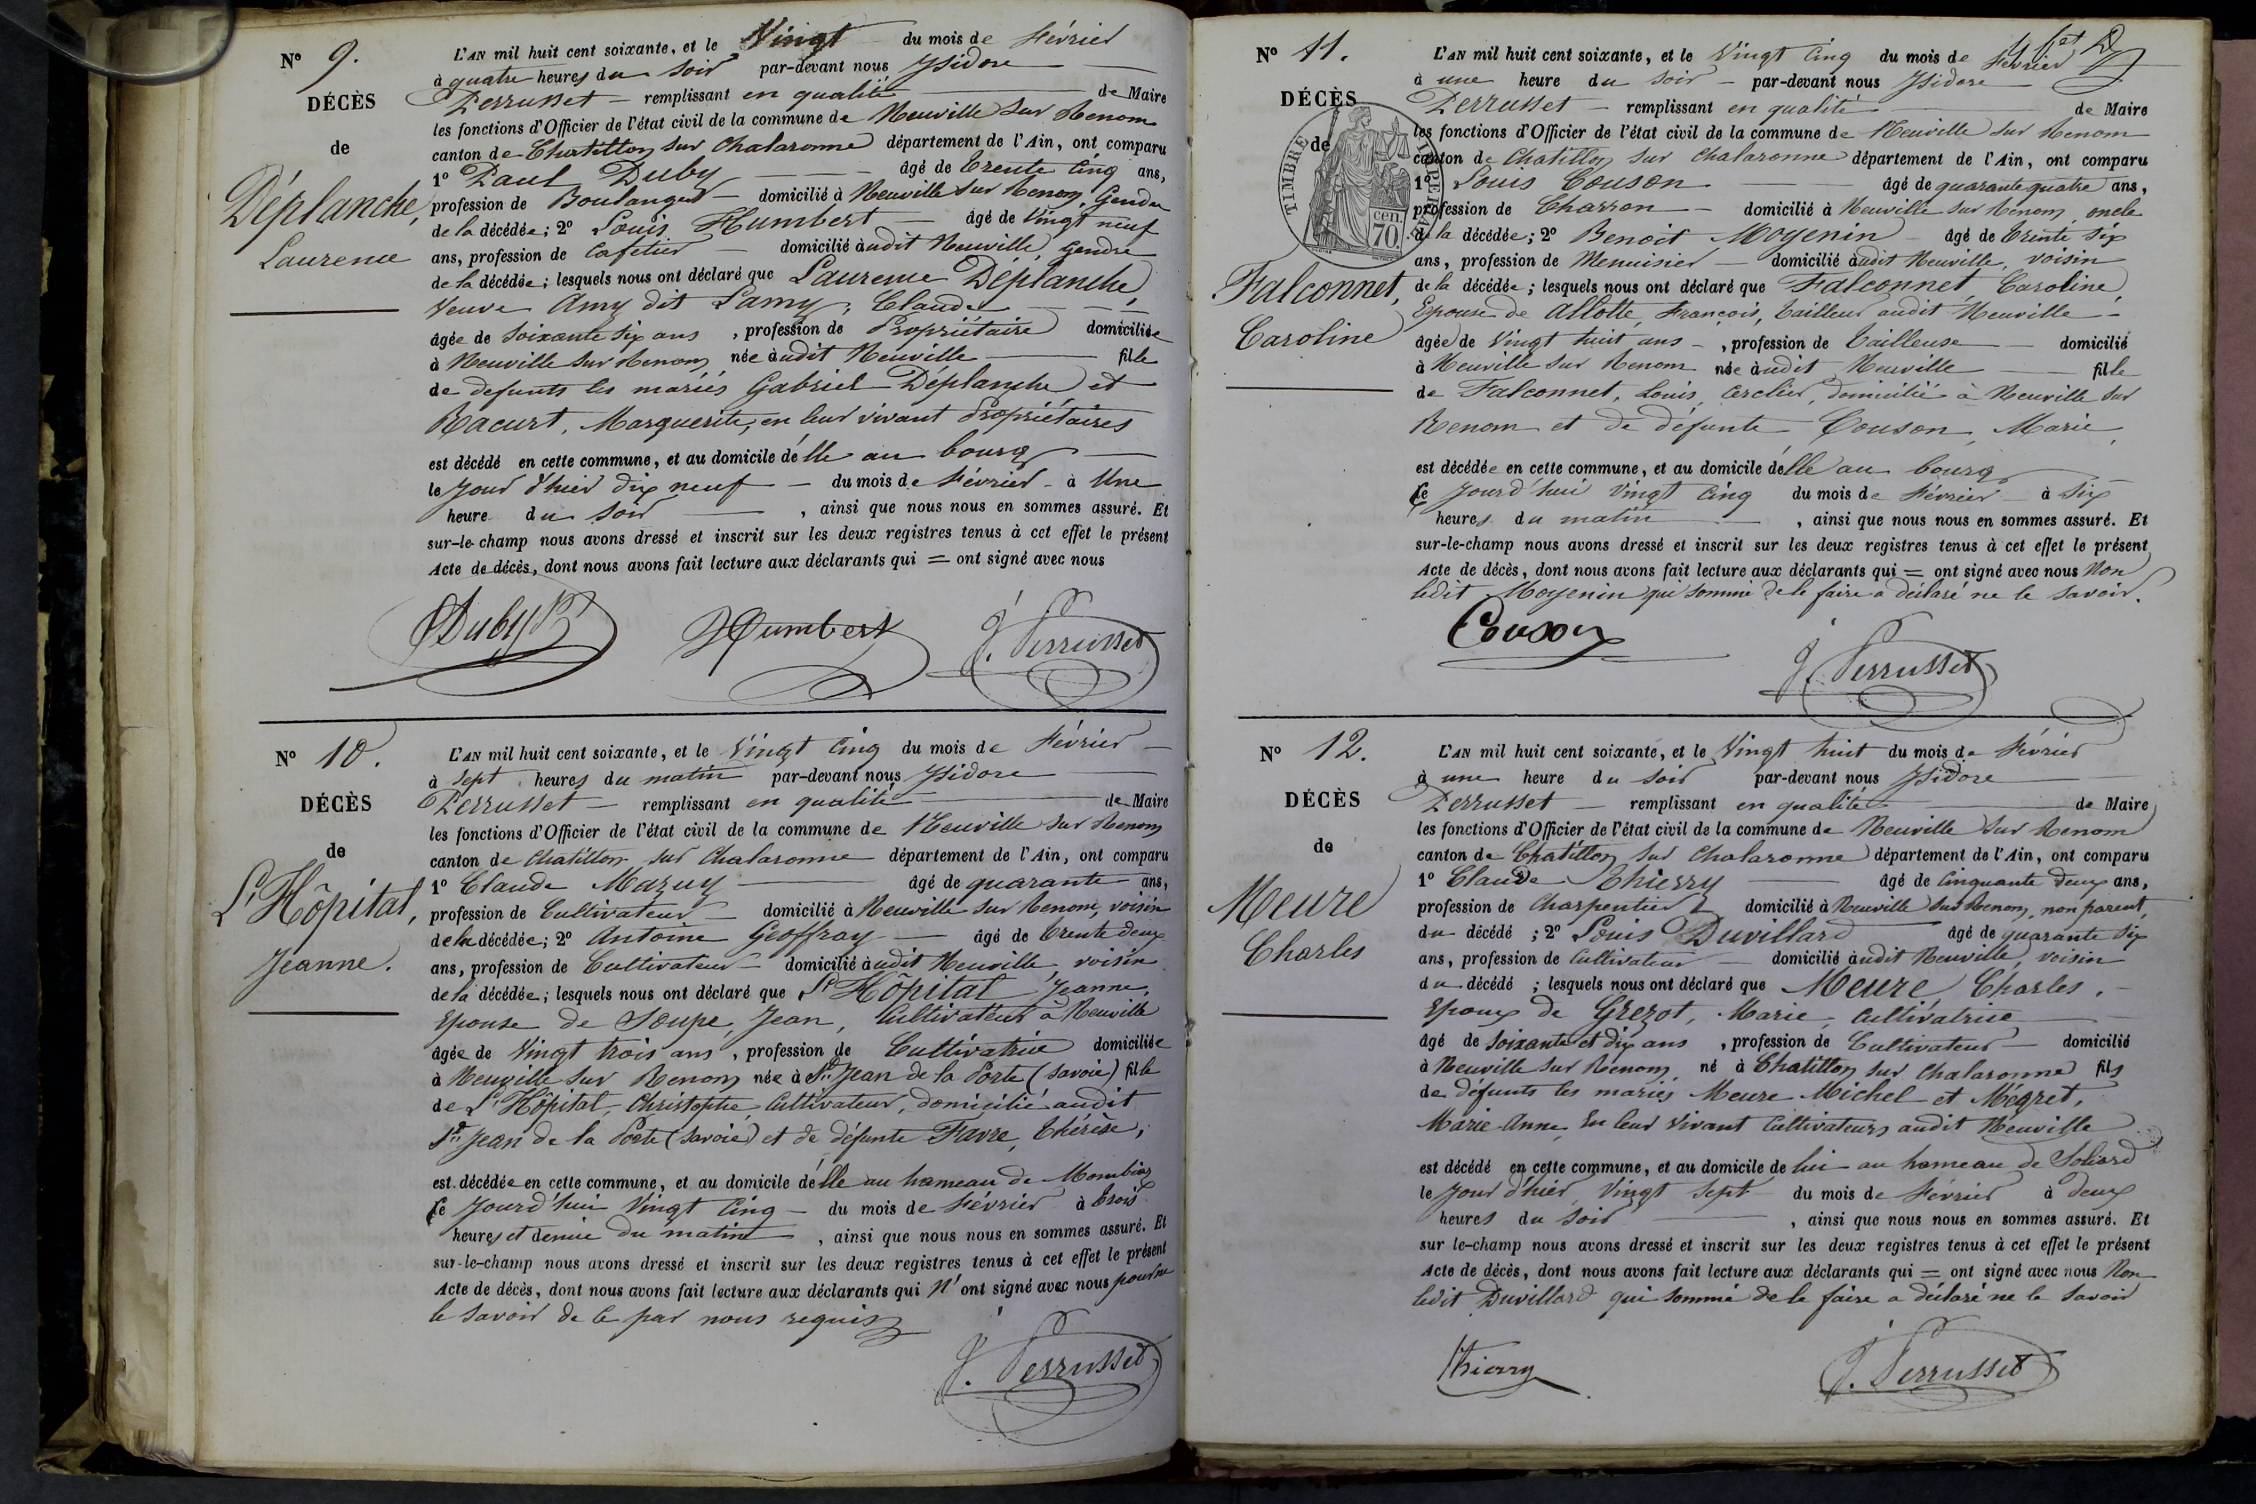 N° 9.
DÉCÈS
de
Déplanche,
Laurence
L'AN mil huit cent soixante, et le Vingt du mois de Février
à quatre heures du soir par-devant nous Ysidore
Perrusset remplissant en qualité de Maire
les fonctions d'Officier de l'état civil de la commune de Neuville sur Renom
canton de Chatillon sur Chalaronne département de l'Ain, ont comparu
1° Paul Duby âgé de trente cinq ans,
profession de Boulanger domicilié à Neuville sur Renom, Gendre
de la décédée; 2° Louis Humbert âgé de Vingt neuf
ans, profession de Cafetier domicilié audit Neuville, gendre
de la décédée; lesquels nous ont déclaré que Laurence Déplanche,
Veuve Amy dit Lamy, Claude
âgée de soixante six ans, profession de Propriétaire domiciliée
à Neuville sur Renom née audit Neuville fille
de defunts les mariés Gabriel Déplanche et
Racurt, Marguerite, en leur vivant Propriétaires
est décédé en cette commune, et au domicile d'elle au bourg
le jour d'hier dix neuf du mois de Février à Une
heure du soir, ainsi que nous nous en sommes assuré. Et
sur-le-champ nous avons dressé et inscrit sur les deux registres tenus à cet effet le présent
Acte de décès, dont nous avons fait lecture aux déclarants qui = ont signé avec nous
Duby P Humbert J. Perrusset
N° 10.
DÉCÈS
de
L'Hôpital,
Jeanne.
L'AN mil huit cent soixante, et le Vingt cinq du mois de Février
à sept heures du matin par-devant nous Ysidore
Perrusset remplissant en qualité de Maire
les fonctions d'Officier de l'état civil de la commune de Neuville sur Renom
canton de Chatillon sur Chalaronne département de l'Ain, ont comparu
1° Claude Mazuy âgé de quarante ans,
profession de Cultivateur domicilié à Neuville sur Renom, voisin
de la décédée; 2° Antoine Geoffray âgé de trente deux
ans, profession de Cultivateur domicilié audit Neuville, voisin
de la décédée; lesquels nous ont déclaré que L'Hôpital Jeanne,
Epouse de Soupe, Jean, Cultivateur à Neuville
âgée de Vingt trois ans, profession de Cultivatrice domiciliée
à Neuville sur Renom née à St Jean de la Porte (Savoie) fille
de L'Hôpital, Christophe, Cultivateur, domicilié audit
St Jean de la Porte (Savoie) et de défunte Favre, Thérèse,
est décédée en cette commune, et au domicile d'elle au hameau de
ce jourd'hui Vingt cinq du mois de Février à trois
heures et demie du matin, ainsi que nous nous en sommes assuré. Et
sur-le-champ nous avons dressé et inscrit sur les deux registres tenus à cet effet le présent
Acte de décès, dont nous avons fait lecture aux déclarants qui n'ont signé avec nous pour ne
le savoir de ce par nous requis
J. Perrusset
N° 11.
DÉCÈS
de
TIMBRE IMPERIAL
cen.
70.
Falconnet,
Caroline
L'AN mil huit cent soixante, et le Vingt cinq du mois de Février
à une heure du soir par-devant nous Ysidore
Perrusset remplissant en qualité de Maire
les fonctions d'Officier de l'état civil de la commune de Neuville sur Renom
canton de Chatillon sur Chalaronne département de l'Ain, ont comparu
1° Louis Couson âgé de quarante quatre ans,
profession de Charron domicilié à Neuville sur Renom, oncle
de la décédée; 2° Benoit Moyenin âgé de trente six
ans, profession de Menuisier domicilié audit Neuville, voisin
de la décédée; lesquels nous ont déclaré que Falconnet Caroline,
Epouse de Allotte, François, tailleur audit Neuville
âgée de Vingt huit ans, profession de Tailleuse domicilié
à Neuville sur Renom née audit Neuville fille
de Falconnet, Louis, cerclier, domicilié à Neuville sur
Renom et de défunte Couson, Marie,
est décédée en cette commune, et au domicile d'elle au bourg
ce jourd'hui Vingt cinq du mois de Février à six
heures du matin, ainsi que nous nous en sommes assuré. Et
sur-le-champ nous avons dressé et inscrit sur les deux registres tenus à cet effet le présent
Acte de décès, dont nous avons fait lecture aux déclarants qui = ont signé avec nous Non
ledit Moyenin qui sommé de le faire a déclaré ne le savoir.
Couson J. Perrusset
N° 12.
DÉCÈS
de
Meure
Charles
L'AN mil huit cent soixante, et le Vingt huit du mois de Février
à une heure du soir par-devant nous Ysidore
Perrusset remplissant en qualité de Maire
les fonctions d'Officier de l'état civil de la commune de Neuville sur Renom
canton de Chatillon sur Chalaronne département de l'Ain, ont comparu
1° Claude Thierry âgé de cinquante deux ans,
profession de Charpentier domicilié à Neuville sur Renom, non parent,
du décédé; 2° Louis Duvillard âgé de quarante six
ans, profession de Cultivateur domicilié audit Neuville, voisin
du décédé; lesquels nous ont déclaré que Meure Charles,
Epoux de Grezot, Marie, Cultivatrice
âgé de soixante et dix ans, profession de Cultivateur domicilié
à Neuville sur Renom né à Chatillon sur Chalaronne fils
de défunts les mariés Meure Michel et Mégret,
Marie Anne, En leur vivant Cultivateurs audit Neuville
est décédé en cette commune, et au domicile de lui au hameau de
le jour d'hier, Vingt sept du mois de Février à deux
heures du soir, ainsi que nous nous en sommes assuré. Et
sur le-champ nous avons dressé et inscrit sur les deux registres tenus à cet effet le présent
Acte de décès, dont nous avons fait lecture aux déclarants qui = ont signé avec nous Non
ledit Duvillard qui sommé de le faire a déclaré ne le savoir
Thierry J. Perrusset